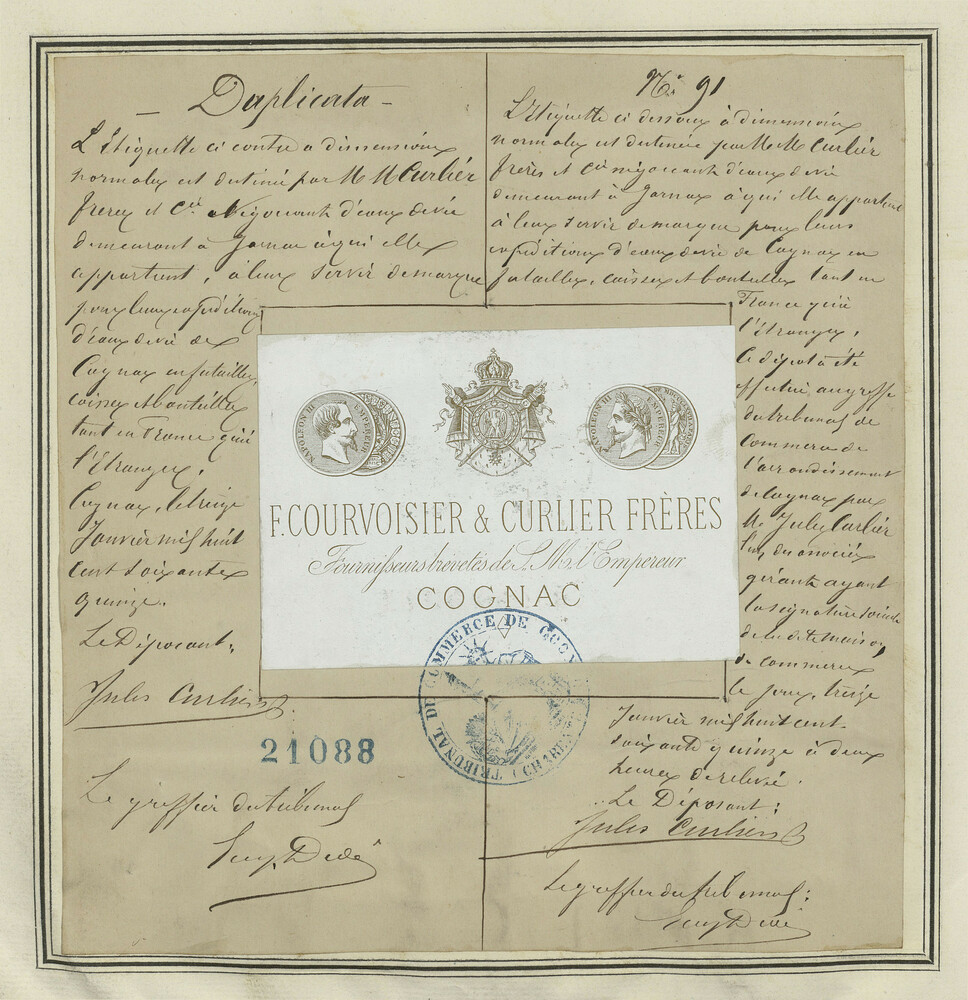 Duplicata
L'Etiquette ci contre a dimensions
normales est destinée par M M Curlier
frères et Cie Négociants d'eaux de vie
demeurant à Jarnac à qui elle
appartient, à leur servir de marque
pour leurs expéditions
d'eaux de vie de
Cognac en futailles,
caisses et bouteilles
tant en France qu'à
l'Etranger.
Cognac, le treize
Janvier mil huit
cent soixante
quinze.
Le Déposant,
Jules Curlier
21088
Le greffier du tribunal
No 91
L'Etiquette ci dessous à dimensions
normales est destinée par M M Curlier
frères et Cie négociants d'eaux de vie
demeurant à Jarnac à qui elle appartient
à leur servir de marque pour leurs
expéditions d'eaux de vie de Cognac en
futailles, caisses et bouteilles tant en
France qu'à
l'étranger,
Le dépôt a été
effectué au greffe
du tribunal de
Commerce de
l'arrondissement
de Cognac par
Mr Jules Curlier
l'un des associés
gérants ayant
la signature sociale
de la dite maison
de commerce
le jour, treize
Janvier mil huit cent
soixante quinze à deux
heures de relevée.
Le Déposant:
Jules Curlier
Le greffier du tribunal:
NAPOLEON III EMPEREUR
NAPOLEON III EMPEREUR
F. COURVOISIER & CURLIER FRÈRES
Fournisseurs brevetés de S. M. l'Empereur
COGNAC
TRIBUNAL DE COMMERCE DE COGNAC